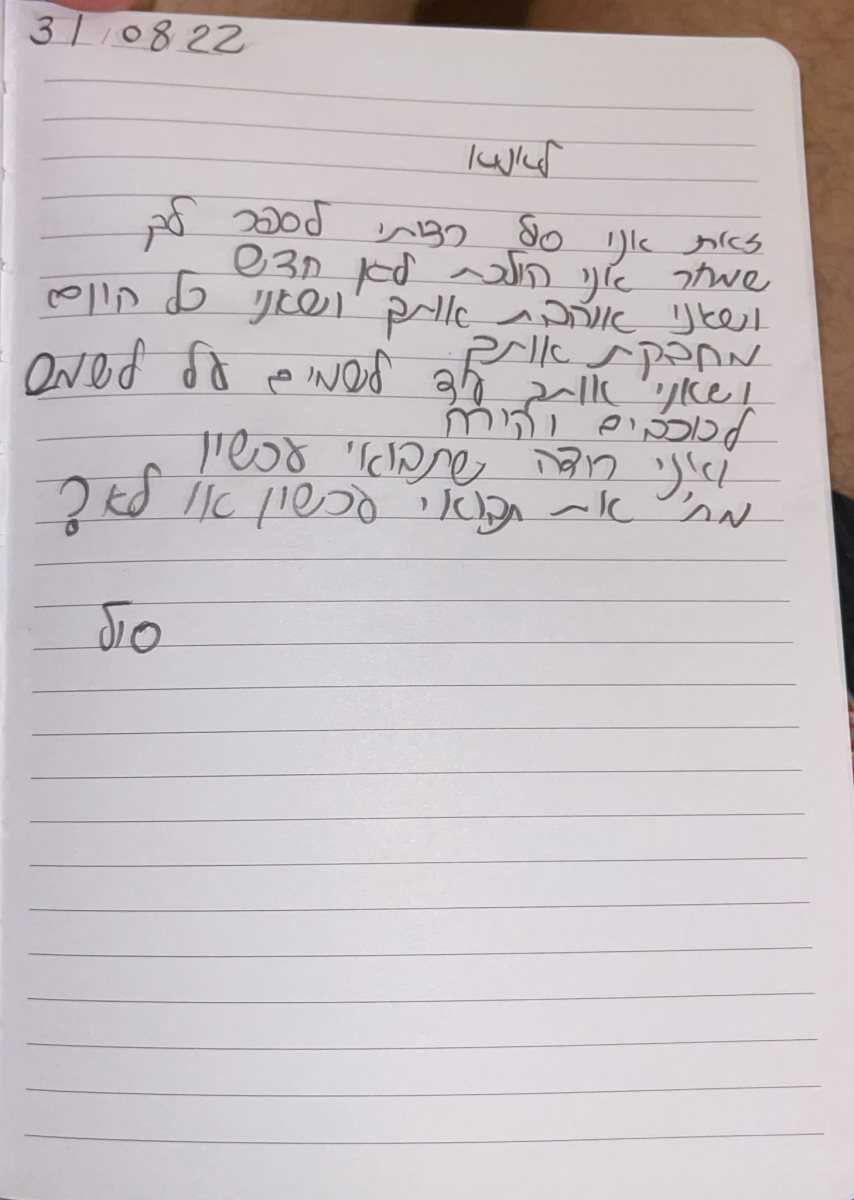 31.08.22
לאמא
זאת אני סול רציתי לספר לך
שמחר אני הולכת לגן חדש
ושאני אוהבת אותך ושאני כל היום
מחבקת אותך
ושאני אותך עד לשמים על לשמש
לכוכבים והירח
ואני רוצה שתבואי עכשיו
מתי את תבואי עכשיו או לא?
סול